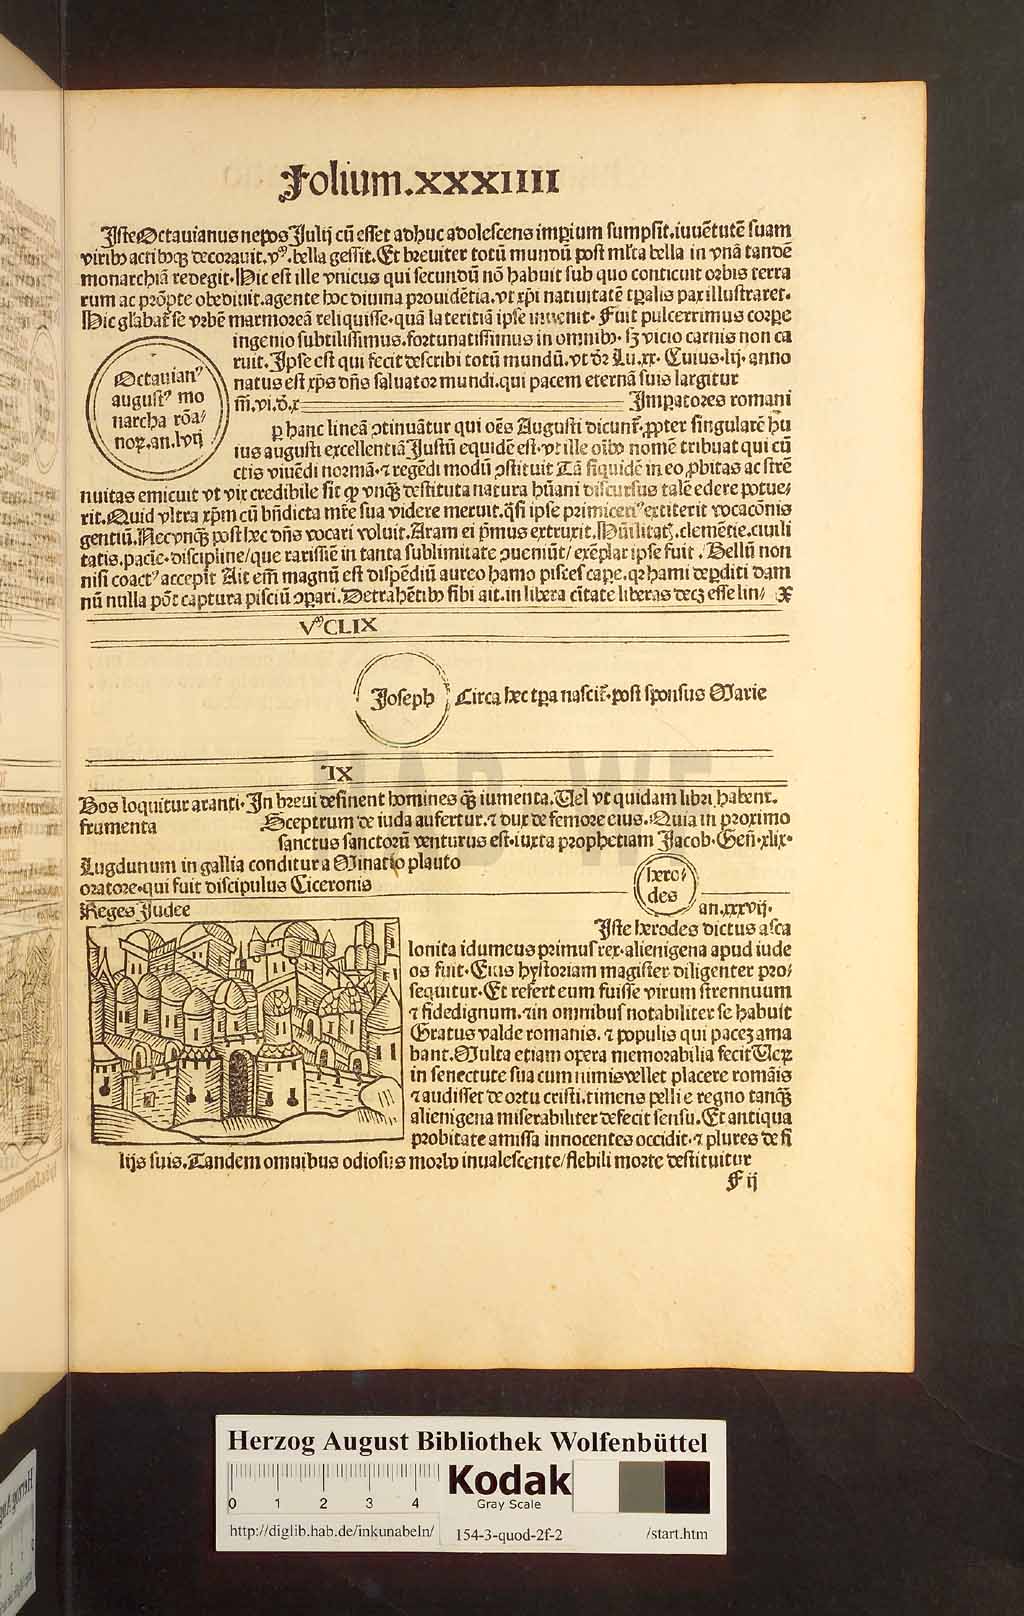 Folium.xxxiiii
Iste Octauianus nepos Julij cū esset adhuc adolescens impium sumpsit.iuuētutē suam
virib9 actib9q̄ decorauit.v9.bella gessit.Et breuiter totū mundū post ml̄ta bella in vnā tandē
monarchiā redegit.Hic est ille vnicus qui secundū nō habuit sub quo conticuit orbis terra
rum ac prōpte obediuit.agente hoc diuina prouidētia.vt xp̄i natiuitatē tp̄alis pax illustraret.
Hic gl̄abat̄ se vrbē marmoreā reliquisse.quā lateritiā ipse inuenit. Fuit pulcerrimus corpe
ingenio subtilissimus.fortunatissimus in omnib9. sȝ vicio carnis non ca
ruit. Ipse est qui fecit describi totū mundū.vt dr̄ Lu.xx. Cuius.lij.anno
natus est xp̄s dn̄s saluator mundi.qui pacem eternā suis largitur
Octauian9
august9 mo
narcha rōa/
noꝝ.an.lvij
m̄.vi.d̄.x
Impatores romani
ꝑ hanc lineā ꝯtinuātur qui oēs Augusti dicunt̄.ꝓpter singularē hu
ius augusti excellentiā Justū equidē est.vt ille oīb9 nomē tribuat qui cū
ctis viuēdi normā.⁊ regēdi modū ꝯstituit Tā siquidē in eo ꝓbitas ac strē
nuitas emicuit vt vix credibile sit ꝙ vnq̄ȝ destituta natura hūani discursus talē edere potue/
rit.Quid vltra xp̄m cū bn̄dicta mr̄e sua videre meruit.q̄si ipse primiceri9 extiterit vocacōnis
gentiū.Nec vnq̄ȝ post hec dn̄s vocari voluit.Aram ei p̄mus extruxit. Hūilitatȝ.clemētie.ciuili
tatis.paciē.discipline/que rarissie in tanta sublimitate ꝯueniūt/exēplar ipse fuit. Bellū non
nisi coact9 accepit Ait em̄ magnū est dispēdiū aureo hamo pisces cape.qꝛ hami depditi dam
nū nulla pōt captura pisciū ꝯpari.Detrahētib9 sibi ait.in libera citate liberas decȝ esse lin/ x
V9CLIX
Joseph
Circa hec tp̄a nascit̄.post sponsus Marie
XL
Bos loquitur aranti.In breui desinent homines q̄ȝ iumenta.Uel vt quidam libri habent.
frumenta
Sceptrum de iuda aufertur.⁊ dux de femore eius.Quia in proximo
sanctus sanctorū venturus est.iuxta prophetiam Jacob.Gen̄.xlix.
Lugdunum in gallia conditur a Minatio plauto
oratore.qui fuit discipulus Ciceronis
hero/
des
an.xxxvij.
Reges Judee
Iste herodes dictus asca
lonita idumeus primus rex.alienigena apud iude
os fuit.Eius hystoriam magister diligenter pro/
sequitur.Et refert eum fuisse virum strennuum
⁊ fidedignum.⁊in omnibus notabiliter se habuit
Gratus valde romanis.⁊ populis qui pacez ama
bant.Multa etiam opera memorabilia fecit Ueꝝ
in senectute sua cum nimis vellet placere romāis
⁊ audisset de ortu cristi.timens pelli e regno tanq̄ȝ
alienigena miserabiliter defecit sensu.Et antiqua
probitate amissa innocentes occidit.⁊ plures de fi
lijs suis.Tandem omnibus odiosus morbo inualescente/flebili morte destituitur
F ij
HAB WF
Herzog August Bibliothek Wolfenbüttel
0 1 2 3 4
Kodak
Gray Scale
http://diglib.hab.de/inkunabeln/ 154-3-quod-2f-2 /start.htm